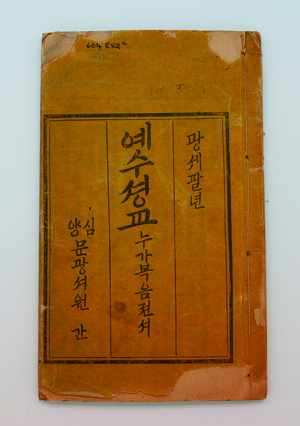 604 E82
광셰팔년
예수셩교누가복음젼셔
심
양문광셔원 간